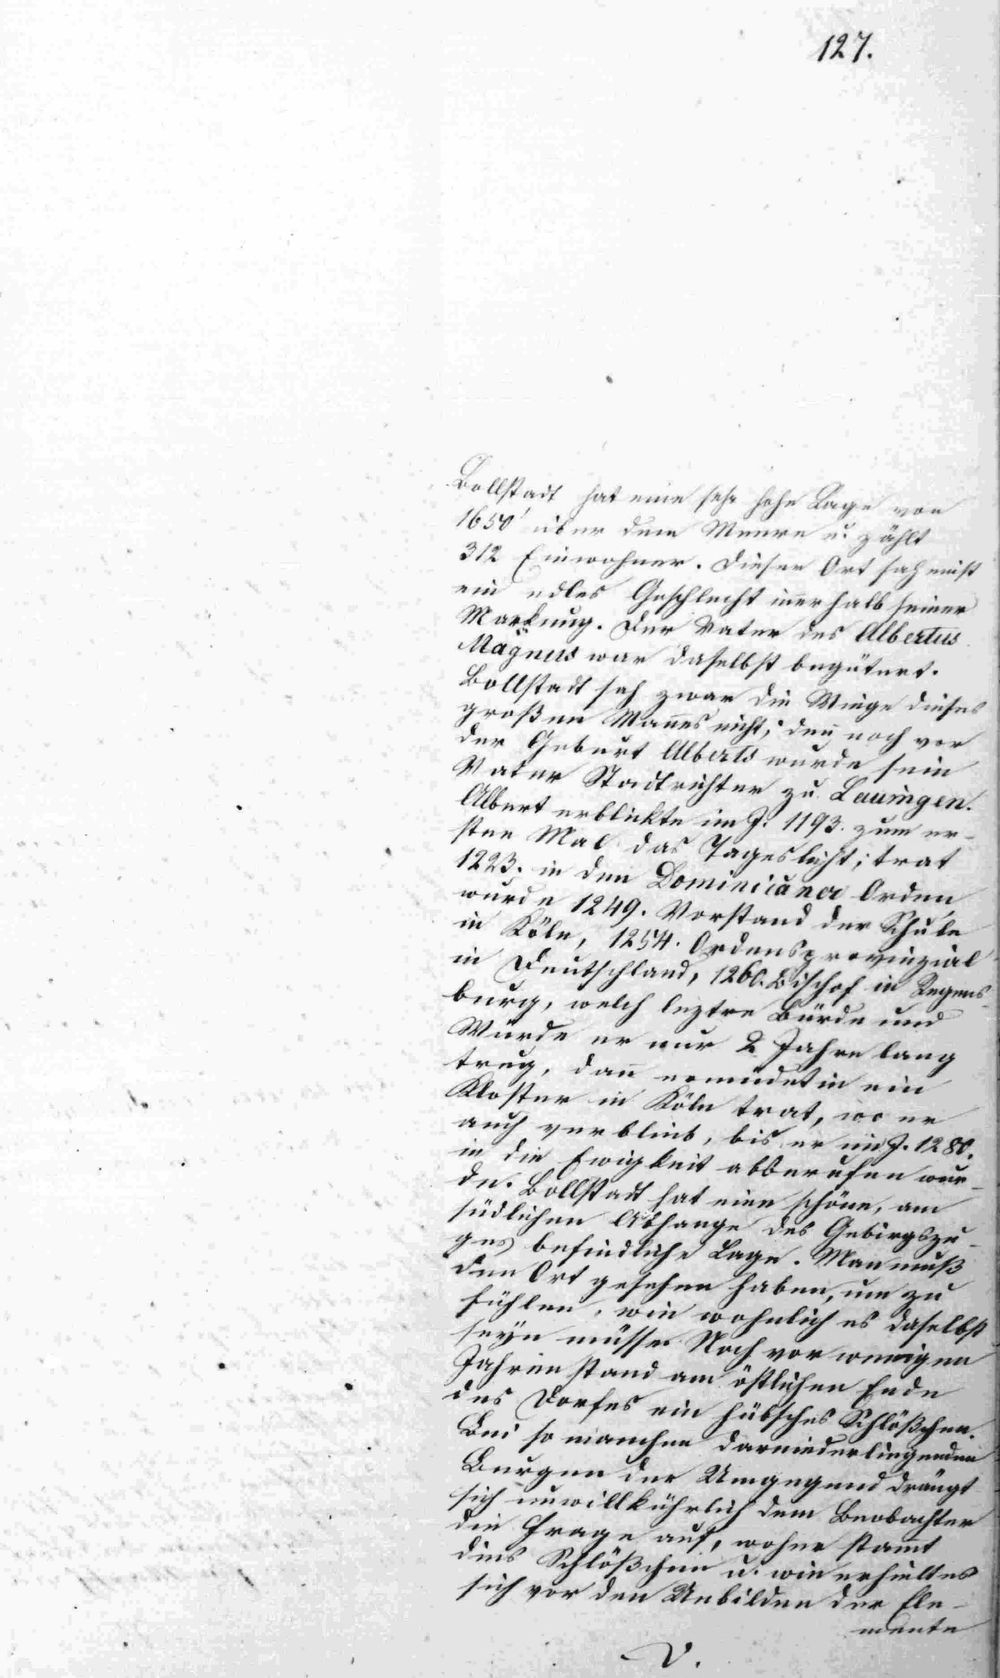 127.
Bollstadt hat eine sehr hohe Lage von
1650' über dem Meere u. zählt
312 Einwohner. Dieser Ort sah einst
ein edles Geschlecht innerhalb seiner
Markung. Der Vater des Albertus
Magnus war daselbst begütert.
Bollstadt sah zwar die Wiege dieses
großen Mannes nicht; denn noch vor
der Geburt Alberts wurde sein
Vater Stadtrichter zu Lauingen.
Albert erblickte im J. 1193. zum er-
sten Mal das Tageslicht; trat
1223. in den Dominicaner Orden,
wurde 1249. Vorstand der Schule
in Köln, 1254. Ordensprovinzial
in Deutschland, 1260. Bischof in Regens-
burg, welch leztre Bürde und
Würde er nur 2 Jahre lang
trug, dann ermüdet in ein
Kloster in Köln trat, wo er
auch verblieb, bis er im J. 1280.
in die Ewigkeit abberufen wur-
de. Bollstadt hat eine schöne, am
südlichen Abhange des Gebirgszu-
ges befindliche Lage. Man muß
den Ort gesehen haben, um zu
fühlen, wie wohnlich es daselbst
seyn müsse. Noch vor wenigen
Jahren stand am östlichen Ende
des Dorfes ein hübsches Schlößchen.
Bei so manchen darniederliegenden
Burgen der Umgegend drängt
sich unwillkührlich dem Beobachter
die Frage auf, woher stamt
dies Schlößchen u. wie erhielt es
sich vor den Unbilden der Ele-
mente
V.